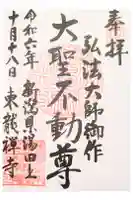 奉拝
弘法大師御作
大聖不動尊
令和六年
十月十八日
新潟県湯田上
東龍禅寺